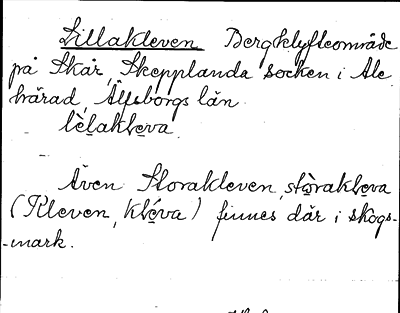 Lillakleven Bergklyfteområde
på Skår, Skepplanda socken i Ale
härad, Älfsborgs län.
lèlaklева
Även Storakleven, stòrakleva
(Kleven, kléva) finnes där i skogs-
-mark.